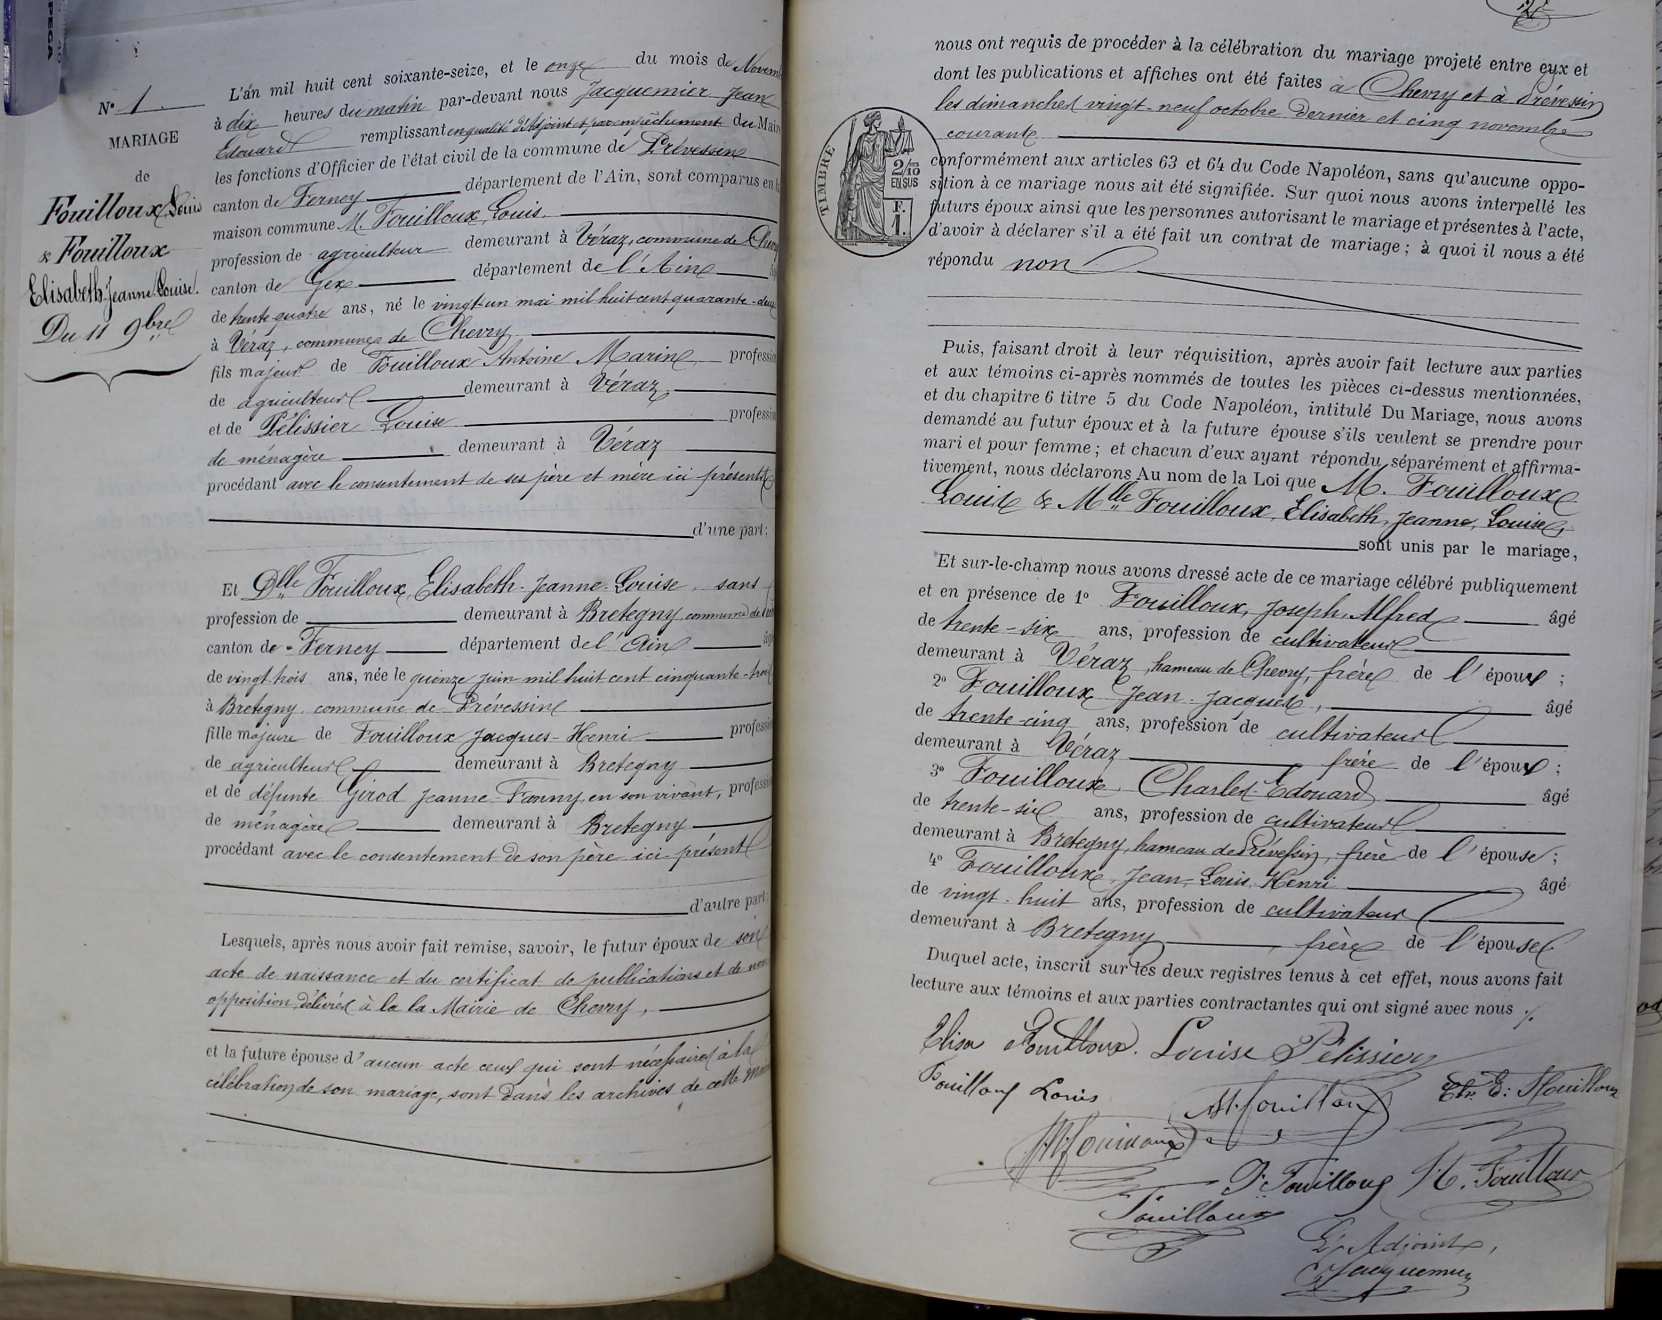 N° 1
MARIAGE
de
Fouilloux Louis
& Fouilloux
Elisabeth Jeanne Louise.
Du 11 9bre
L'an mil huit cent soixante-seize, et le onze du mois de Novem
à dix heures du matin par-devant nous Jacquemier Jean
Edouard remplissant en qualité d'Adjoint et par empêchement du Mair
les fonctions d'Officier de l'état civil de la commune de Prévessin
canton de Ferney département de l'Ain, sont comparus en la
maison commune M. Fouilloux, Louis
profession de agriculteur demeurant à Véraz, commune de Chevry
canton de Gex département de l'Ain
de trente quatre ans, né le vingt-un mai mil huit cent quarante-deux
à Véraz, commune de Chevry
fils majeur de Fouilloux Antoine Marin professio
de agriculteur demeurant à Véraz
et de Pélissier Louise professio
de ménagère demeurant à Véraz
procédant avec le consentement de ses père et mère ici présents
d'une part;
Et Dlle Fouilloux, Elisabeth-Jeanne-Louise sans
profession de demeurant à Bretegny commune de
canton de Ferney département de l'Ain
de vingt trois ans, née le quinze juin mil huit cent cinquante-trois
à Bretegny commune de Prévessin
fille majeure de Fouilloux Jacques-Henri professio
de agriculteur demeurant à Bretegny
et de défunte Girod Jeanne-Fanny, en son vivant, professio
de ménagère demeurant à Bretegny
procédant avec le consentement de son père ici présent
d'autre part
Lesquels, après nous avoir fait remise, savoir, le futur époux de son
acte de naissance et du certificat de publications et de non
opposition délivrés à la la Mairie de Chevry,
et la future épouse d'aucun acte ceux qui sont nécessaires à la
célébration de son mariage, sont dans les archives de cette Mairie
2
nous ont requis de procéder à la célébration du mariage projeté entre eux et
dont les publications et affiches ont été faites à Chevry et à Prévessin
les dimanches vingt-neuf octobre dernier et cinq novembre
courant
TIMBRE
2/10
EN SUS
F.
1.
conformément aux articles 63 et 64 du Code Napoléon, sans qu'aucune oppo-
sition à ce mariage nous ait été signifiée. Sur quoi nous avons interpellé les
futurs époux ainsi que les personnes autorisant le mariage et présentes à l'acte,
d'avoir à déclarer s'il a été fait un contrat de mariage; à quoi il nous a été
répondu non
Puis, faisant droit à leur réquisition, après avoir fait lecture aux parties
et aux témoins ci-après nommés de toutes les pièces ci-dessus mentionnées,
et du chapitre 6 titre 5 du Code Napoléon, intitulé Du Mariage, nous avons
demandé au futur époux et à la future épouse s'ils veulent se prendre pour
mari et pour femme; et chacun d'eux ayant répondu séparément et affirma-
tivement, nous déclarons Au nom de la Loi que M. Fouilloux
Louis & Mlle Fouilloux, Elisabeth, Jeanne, Louise,
sont unis par le mariage,
Et sur-le-champ nous avons dressé acte de ce mariage célébré publiquement
et en présence de 1° Fouilloux, Joseph-Alfred âgé
de trente-six ans, profession de cultivateur
demeurant à Véraz, hameau de Chevry, frère de l'époux;
2° Fouilloux Jean-Jacques, âgé
de trente-cinq ans, profession de cultivateur
demeurant à Véraz frère de l'époux;
3° Fouilloux, Charles-Edouard âgé
de trente-six ans, profession de cultivateur
demeurant à Bretegny, hameau de Prévessin, frère de l'épouse;
4° Fouilloux, Jean-Louis-Henri âgé
de vingt-huit ans, profession de cultivateur
demeurant à Bretegny frère de l'épouse
Duquel acte, inscrit sur les deux registres tenus à cet effet, nous avons fait
lecture aux témoins et aux parties contractantes qui ont signé avec nous
Elisa Fouilloux. Louise Pélissier
Fouilloux Louis M. Fouilloux Ch. E. Fouilloux
Fouilloux
J. Fouilloux H. Fouilloux
Fouilloux
L'Adjoint,
Jacquemier